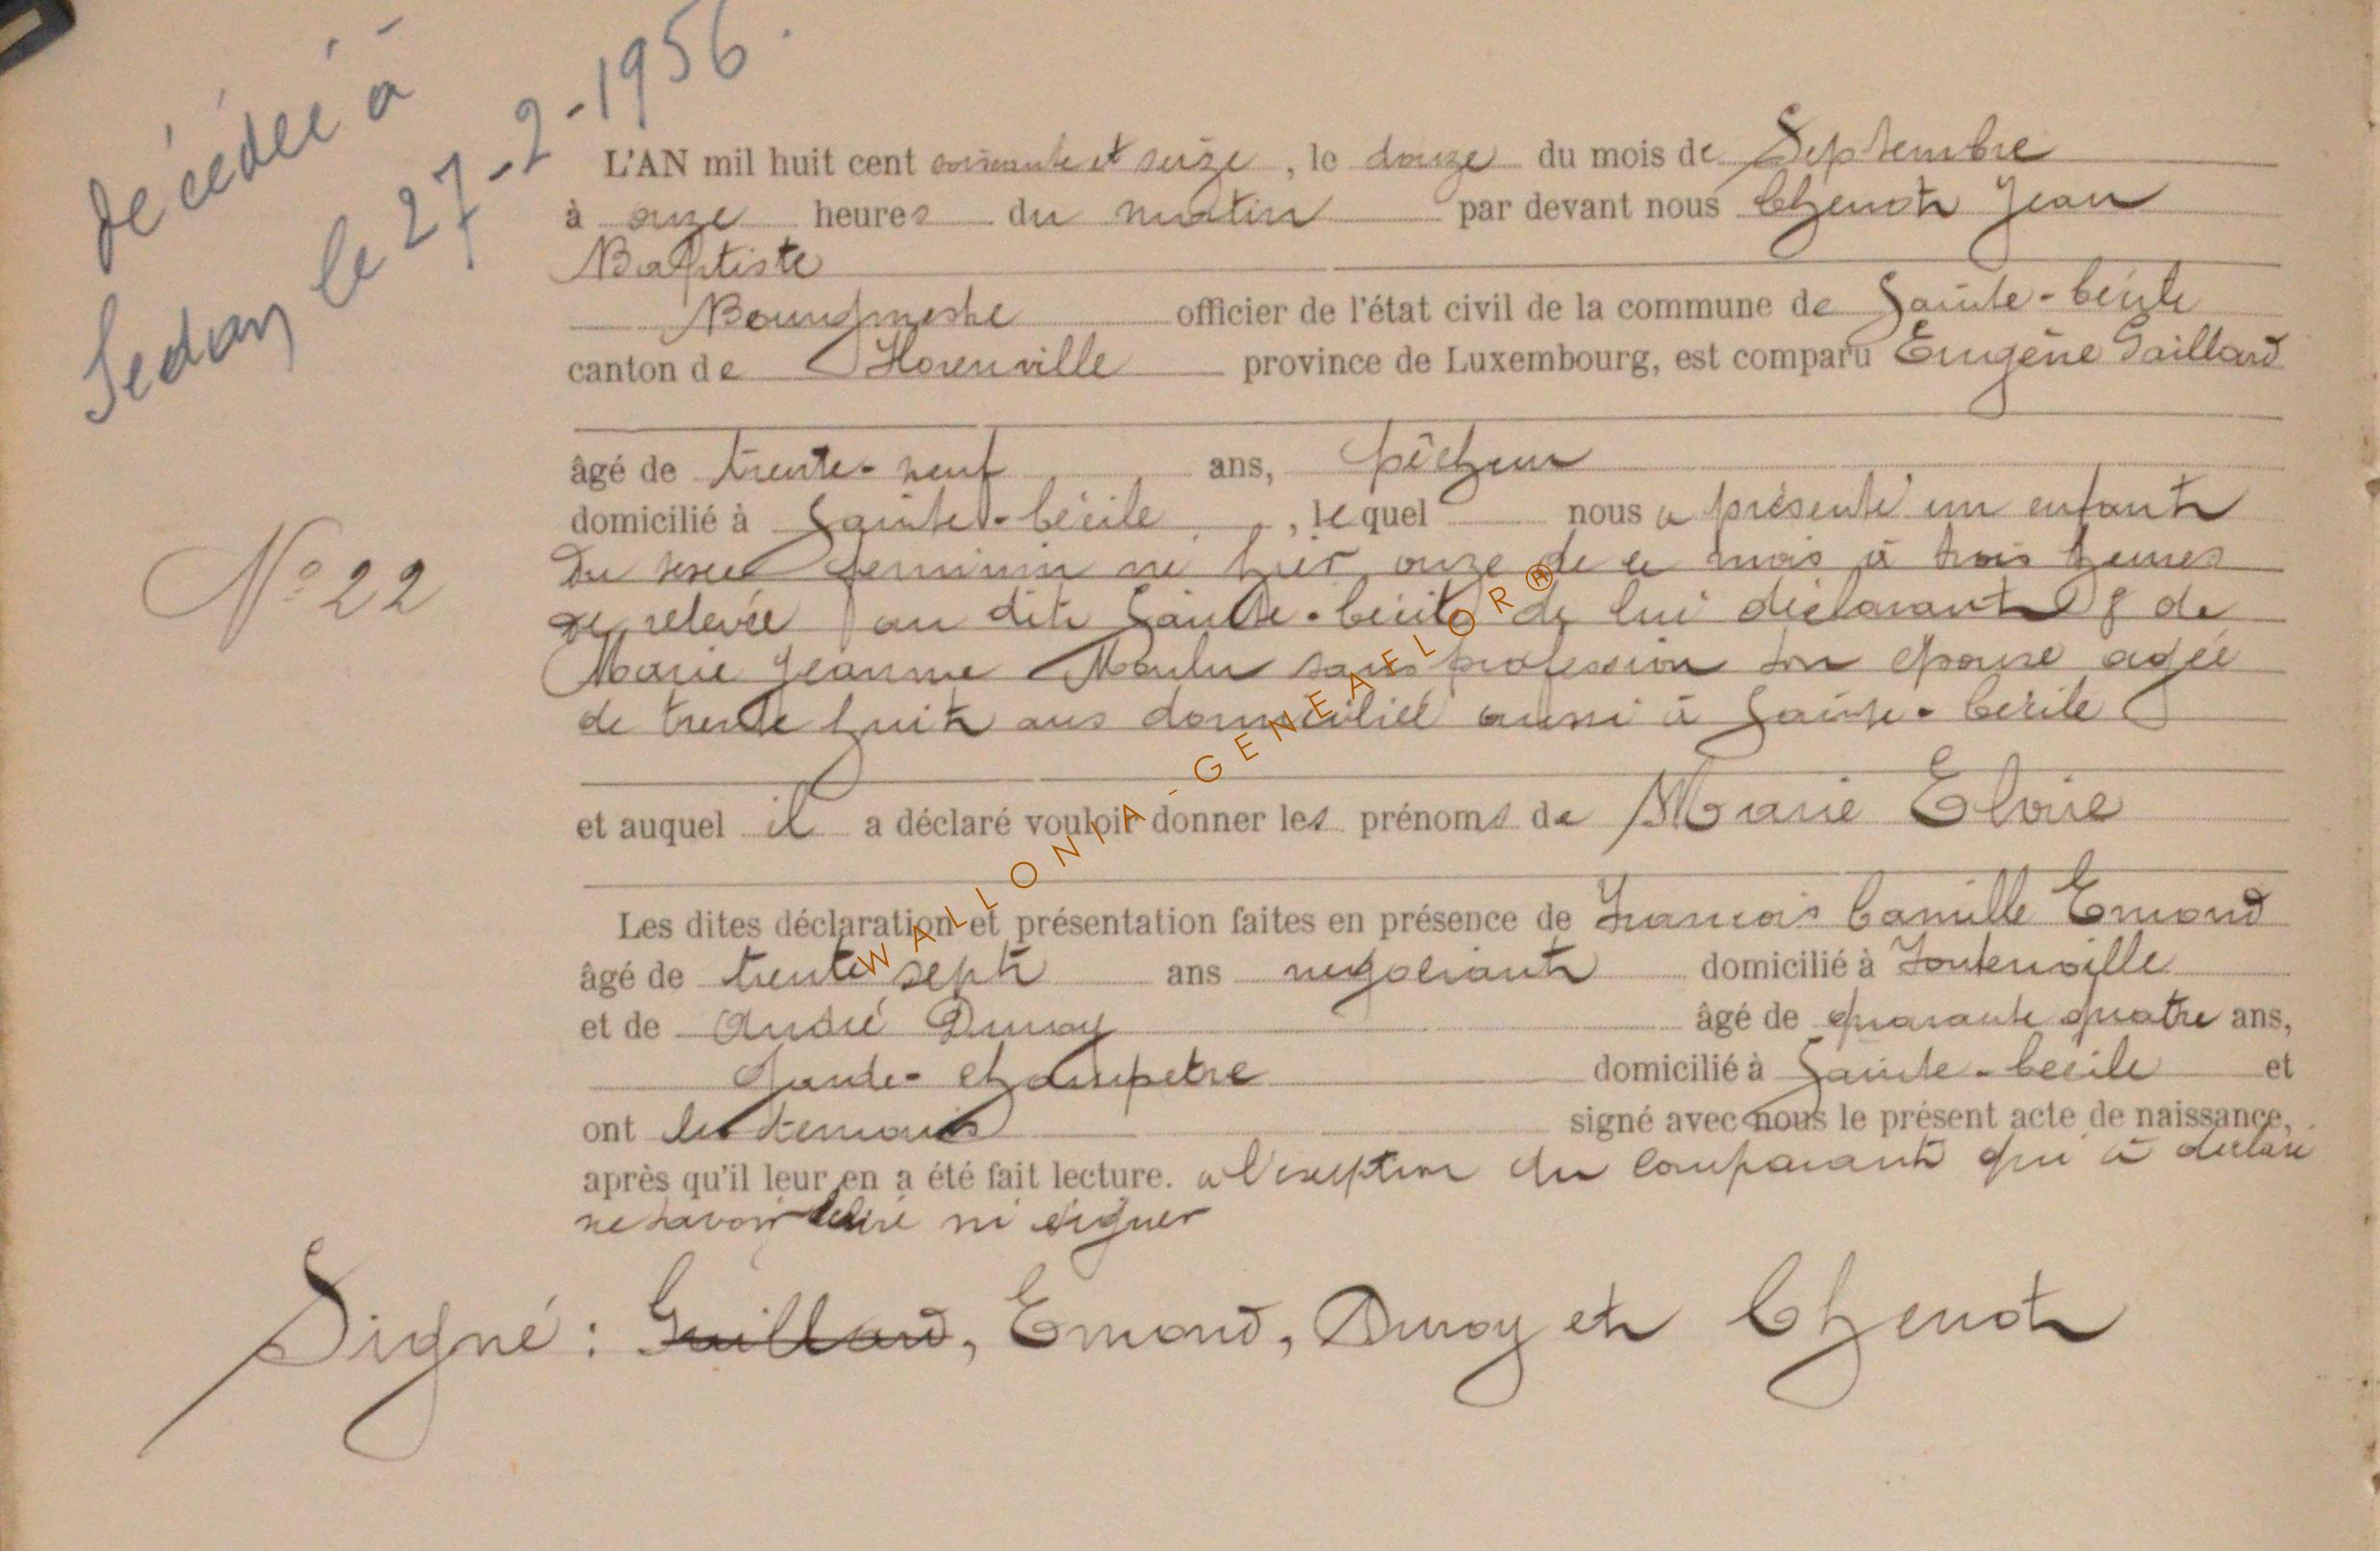 décédée à
Sedan le 27-2-1956.
L'AN mil huit cent soixante et seize, le douze du mois de Septembre
à onze heures du matin par devant nous Chenot Jean
Baptiste
Bourgmestre officier de l'état civil de la commune de Sainte-Cécile
canton de Florenville province de Luxembourg, est comparu Eugène Gaillard
âgé de trente-neuf ans, pêcheur
domicilié à Sainte-Cécile, lequel nous a présenté un enfant
Du sexe feminin né hier onze de ce mois à trois heures
de relevée au dit Sainte-Cécile de lui déclarant & de
N° 22
Marie Jeanne Moulu sans profession son epouse agée
de trente huit ans domiciliée aussi à Sainte-Cécile
et auquel il a déclaré vouloir donner les prénoms de Marie Eloise
Les dites déclaration et présentation faites en présence de Francois Camille Emond
âgé de trente sept ans negociant domicilié à Fontenoille
et de André Duroy âgé de quarante quatre ans,
Garde-champetre domicilié à Sainte-Cécile et
ont les temoins signé avec nous le présent acte de naissance,
après qu'il leur en a été fait lecture. a l'exeption du comparant qui à déclaré
ne savoir ni signer
Signé: Gaillard, Emond, Duroy et Chenot
WALLONIA-GENEAFLOR®